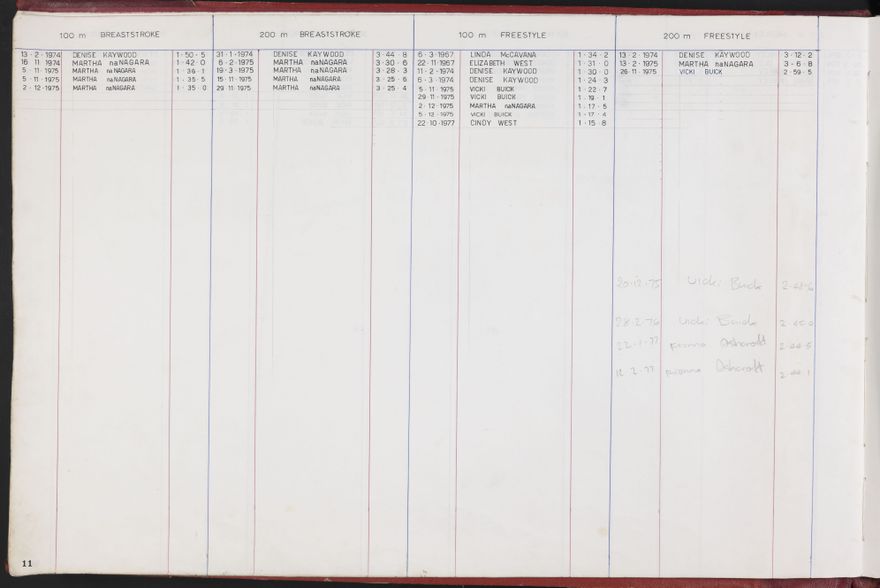 100 m BREASTSTROKE
13 · 2 · 1974 DENISE KAYWOOD 1 · 50 · 5
16 · 11 · 1974 MARTHA naNAGARA 1 · 42 · 0
5 · 11 · 1975 MARTHA naNAGARA 1 · 36 · 1
5 · 11 · 1975 MARTHA naNAGARA 1 · 35 · 5
2 · 12 · 1975 MARTHA naNAGARA 1 · 35 · 0
200 m BREASTSTROKE
31 · 1 · 1974 DENISE KAYWOOD 3 · 44 · 8
6 · 2 · 1975 MARTHA naNAGARA 3 · 30 · 6
19 · 3 · 1975 MARTHA naNAGARA 3 · 28 · 3
15 · 11 · 1975 MARTHA naNAGARA 3 · 25 · 6
29 · 11 · 1975 MARTHA naNAGARA 3 · 25 · 4
100 m FREESTYLE
6 · 3 · 1967 LINDA McCAVANA 1 · 34 · 2
22 · 11 · 1967 ELIZABETH WEST 1 · 31 · 0
11 · 2 · 1974 DENISE KAYWOOD 1 · 30 · 0
6 · 3 · 1974 DENISE KAYWOOD 1 · 24 · 3
5 · 11 · 1975 VICKI BUICK 1 · 22 · 7
29 · 11 · 1975 VICKI BUICK 1 · 19 · 1
2 · 12 · 1975 MARTHA naNAGARA 1 · 17 · 5
5 · 12 · 1975 VICKI BUICK 1 · 17 · 4
22 · 10 · 1977 CINDY WEST 1 · 15 · 8
200 m FREESTYLE
13 · 2 · 1974 DENISE KAYWOOD 3 · 12 · 2
13 · 2 · 1975 MARTHA naNAGARA 3 · 6 · 8
26 · 11 · 1975 VICKI BUICK 2 · 59 · 5
20·12·75 Vicki Buick
28·2·76 Vicki Buick
22·1·77 Ashcroft
12·2·77 Ashcroft
11